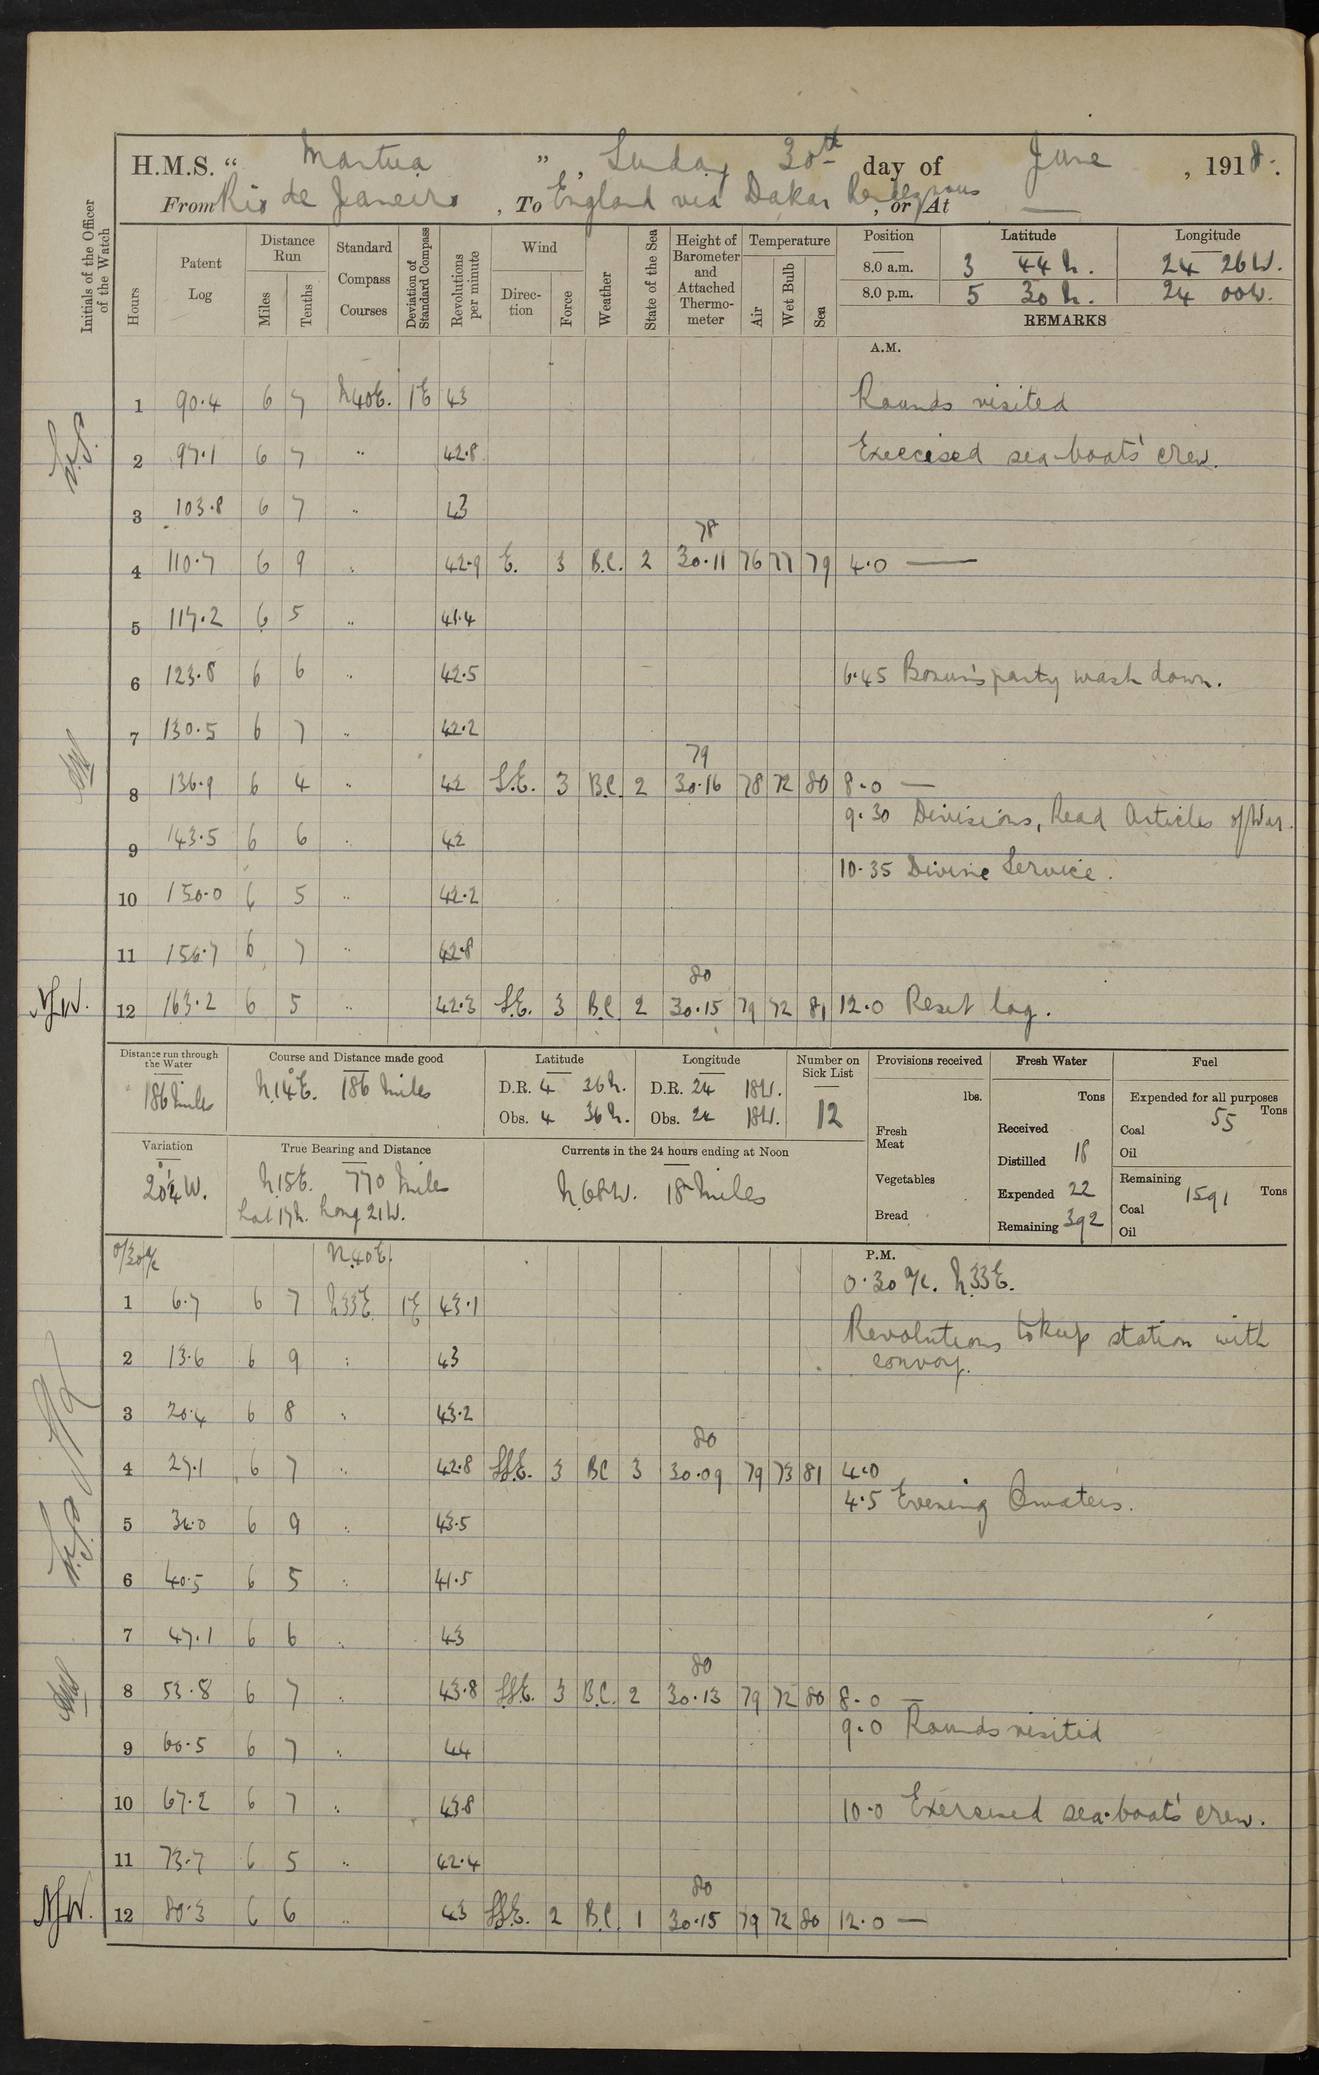 H.M.S. “ Mantua ”, Sunday 30th day of June , 1918.
From Rio de Janeiro , To England via Dakar Rendezvous , or At —
Initials of the Officer of the Watch
Hours
Patent Log
Distance Run
Miles
Tenths
Standard Compass Courses
Deviation of Standard Compass
Revolutions per minute
Wind
Direction
Force
Weather
State of the Sea
Height of Barometer and Attached Thermometer
Temperature
Air
Wet Bulb
Sea
Position Latitude Longitude
8.0 a.m. 3 44 N. 24 26 W.
8.0 p.m. 5 30 N. 24 00 W.
REMARKS
A.M.
1 90.4 6 7 N40E. 1E 43 Rounds visited
2 97.1 6 7 " 42.8 Exercised sea-boats' crew.
3 103.8 6 7 " 43
78
4 110.7 6 9 " 42.9 E. 3 B.C. 2 30.11 76 77 79 4.0 —
5 117.2 6 5 " 41.4
6 123.8 6 6 " 42.5 6.45 Bosun's party wash down.
7 130.5 6 7 " 42.2
79
8 136.9 6 4 " 42 S.E. 3 B.C. 2 30.16 78 72 80 8.0 —
9.30 Divisions, Read Articles of War.
9 143.5 6 6 " 42
10.35 Divine Service.
10 150.0 6 5 " 42.2
11 156.7 6 7 " 42.8
80
N.J.W. 12 163.2 6 5 " 42.3 S.E. 3 B.C. 2 30.15 79 72 81 12.0 Reset log.
Distance run through the Water
186 Miles
Course and Distance made good
N.14°E. 186 Miles
Latitude
D.R. 4 36 N.
Obs. 4 36 N.
Longitude
D.R. 24 18 W.
Obs. 24 18 W.
Number on Sick List
12
Provisions received
lbs.
Fresh Meat
Vegetables
Bread
Fresh Water
Tons
Received
Distilled 18
Expended 22
Remaining 392
Fuel
Expended for all purposes
Coal 55 Tons
Oil
Remaining
Coal 1591 Tons
Oil
Variation
20¼°W.
True Bearing and Distance
N.15E. 770 Miles
Lat 17N. Long 21W.
Currents in the 24 hours ending at Noon
N.68W. 18 Miles
P.M.
0/30 a/c N.40E. 0.30 a/c. N.33E.
1 6.7 6 7 N33E 1E 43.1
Revolutions to keep station with
convoy.
2 13.6 6 9 " 43
3 20.4 6 8 " 43.2
80
4 27.1 6 7 " 42.8 SSE. 3 BC 3 30.09 79 73 81 4.0
4.5 Evening Quarters.
5 34.0 6 9 " 43.5
6 40.5 6 5 " 41.5
7 47.1 6 6 " 43
80
8 53.8 6 7 " 43.8 SSE. 3 B.C. 2 30.13 79 72 80 8.0 —
9.0 Rounds visited
9 60.5 6 7 " 44
10 67.2 6 7 " 43.8 10.0 Exercised sea-boat's crew.
11 73.7 6 5 " 42.4
80
N.J.W. 12 80.3 6 6 " 43 SSE. 2 B.C. 1 30.15 79 72 80 12.0 —